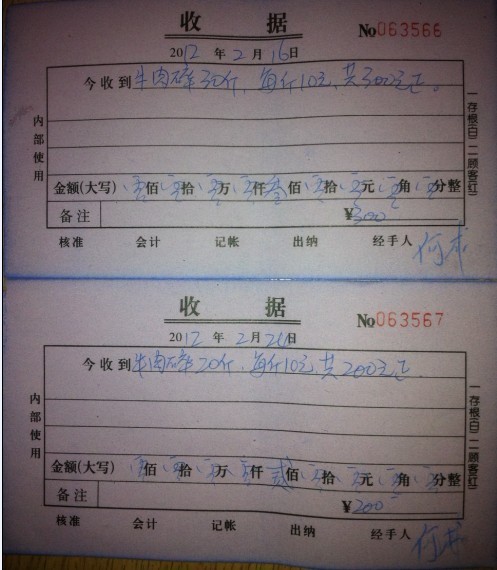 收 据
No063566
2012 年 2 月 16 日
今收到 牛肉碎30斤,每斤10元,共300元正。
内部使用
一存根(白) 二顾客(红)
金额(大写) 零佰零拾零万零仟叁佰零拾零元零角零分整
备注 ¥300
核准 会计 记帐 出纳 经手人 何
收 据
No063567
2012 年 2 月 26 日
今收到 牛肉碎20斤,每斤10元,共200元正
内部使用
一存根(白) 二顾客(红)
金额(大写) 零佰零拾零万零仟贰佰零拾零元零角零分整
备注 ¥200
核准 会计 记帐 出纳 经手人 何